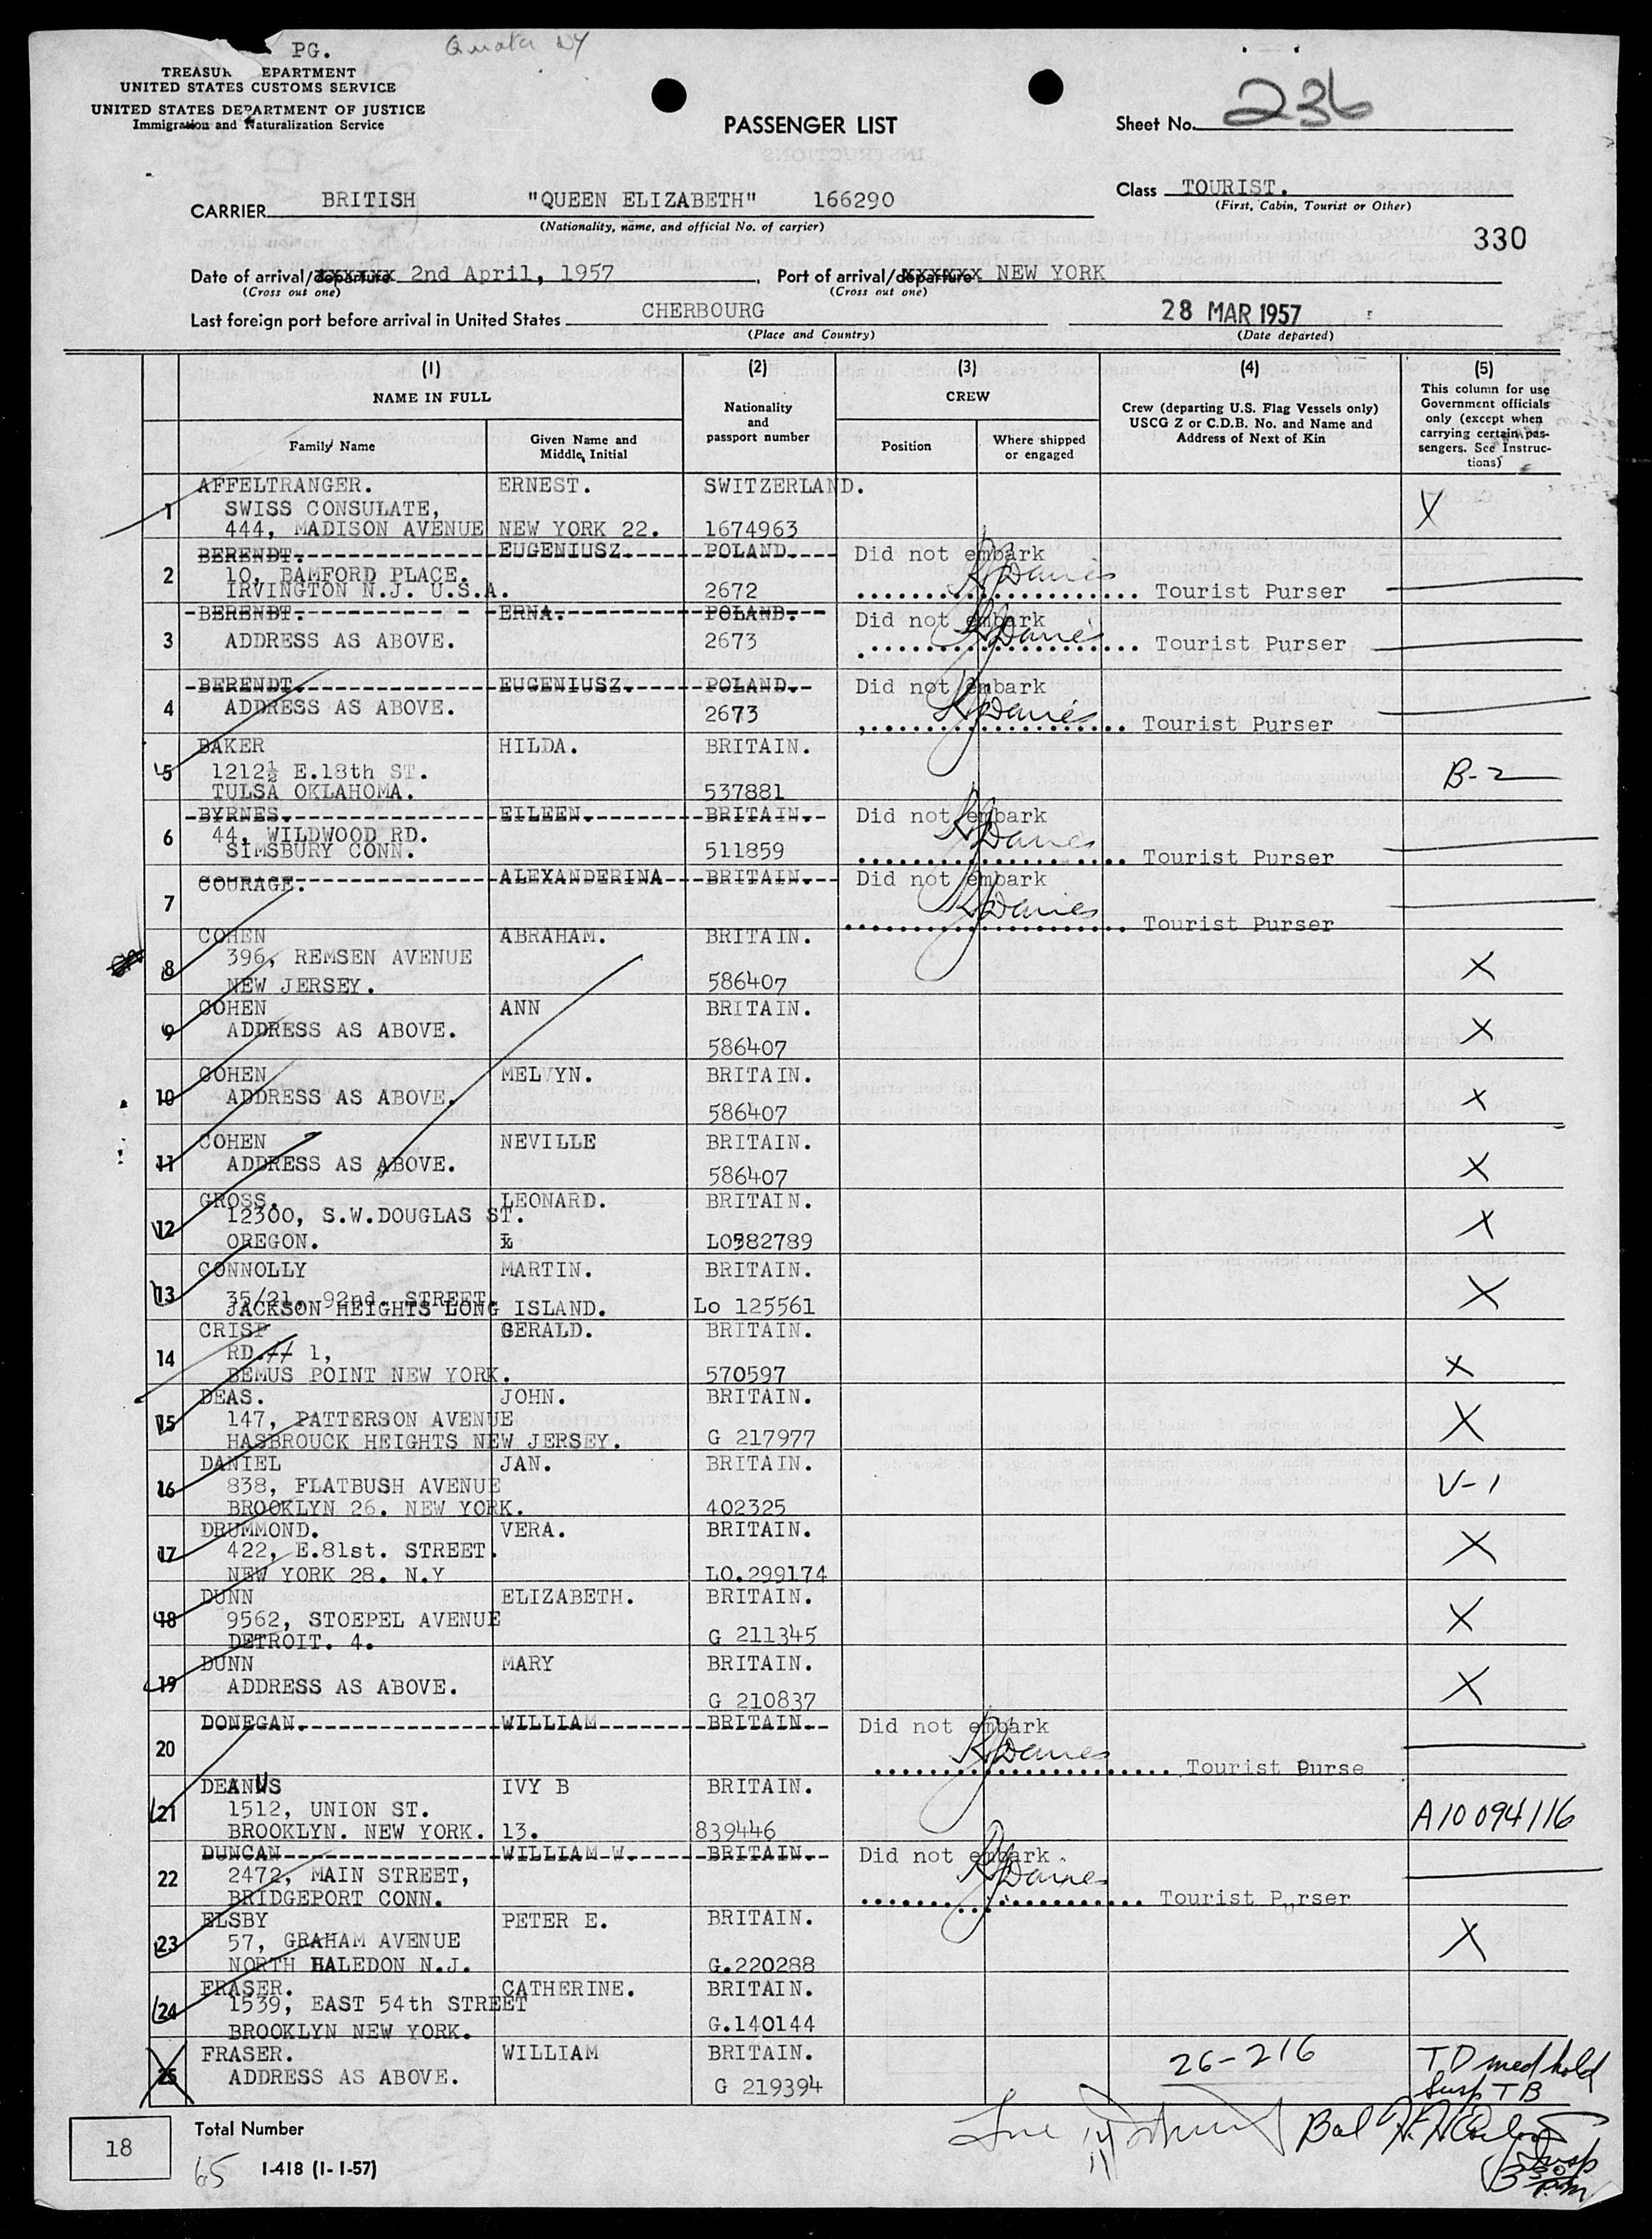 PG.
TREASUR EPARTMENT
UNITED STATES CUSTOMS SERVICE
UNITED STATES DEPARTMENT OF JUSTICE
Immigration and Naturalization Service
PASSENGER LIST
Sheet No. 236
CARRIER BRITISH "QUEEN ELIZABETH" 166290
(Nationality, name, and official No. of carrier)
Class TOURIST.
(First, Cabin, Tourist or Other)
330
Date of arrival/departure 2nd April, 1957, Port of arrival/departure NEW YORK
(Cross out one) (Cross out one)
Last foreign port before arrival in United States CHERBOURG 28 MAR 1957
(Place and Country) (Date departed)
(1) (2) (3) (4) (5)
NAME IN FULL
Family Name
Given Name and Middle Initial
Nationality and passport number
CREW
Position
Where shipped or engaged
Crew (departing U.S. Flag Vessels only)
USCG Z or C.D.B. No. and Name and
Address of Next of Kin
This column for use
Government officials
only (except when
carrying certain pas-
sengers. See Instruc-
tions)
AFFELTRANGER. ERNEST. SWITZERLAND.
1 SWISS CONSULATE, X
444, MADISON AVENUE NEW YORK 22. 1674963
BERENDT. EUGENIUSZ. POLAND. Did not embark
2 10, BAMFORD PLACE.
IRVINGTON N.J. U.S.A. 2672 Tourist Purser
BERENDT. ERNA. POLAND. Did not embark
3 ADDRESS AS ABOVE. 2673 Tourist Purser
BERENDT. EUGENIUSZ. POLAND. Did not embark
4 ADDRESS AS ABOVE. 2673 Tourist Purser
BAKER HILDA. BRITAIN.
5 1212½ E.18th ST. B-2
TULSA OKLAHOMA. 537881
BYRNES. EILEEN. BRITAIN. Did not embark
6 44, WILDWOOD RD.
SIMSBURY CONN. 511859 Tourist Purser
COURAGE. ALEXANDERINA BRITAIN. Did not embark
7 Tourist Purser
COHEN ABRAHAM. BRITAIN.
8 396, REMSEN AVENUE X
NEW JERSEY. 586407
COHEN ANN BRITAIN.
9 ADDRESS AS ABOVE. 586407 X
COHEN MELVYN. BRITAIN.
10 ADDRESS AS ABOVE. 586407 X
COHEN NEVILLE BRITAIN.
11 ADDRESS AS ABOVE. 586407 X
GROSS. LEONARD. BRITAIN.
12 12300, S.W.DOUGLAS ST. X
OREGON. LO582789
CONNOLLY MARTIN. BRITAIN.
13 35/21, 92nd. STREET X
JACKSON HEIGHTS LONG ISLAND. Lo 125561
CRISP GERALD. BRITAIN.
14 RD.// 1, X
BEMUS POINT NEW YORK. 570597
DEAS. JOHN. BRITAIN.
15 147, PATTERSON AVENUE X
HASBROUCK HEIGHTS NEW JERSEY. G 217977
DANIEL JAN. BRITAIN.
16 838, FLATBUSH AVENUE V-1
BROOKLYN 26. NEW YORK. 402325
DRUMMOND. VERA. BRITAIN.
17 422, E.81st. STREET. X
NEW YORK 28. N.Y LO.299174
DUNN ELIZABETH. BRITAIN.
18 9562, STOEPEL AVENUE X
DETROIT. 4. G 211345
DUNN MARY BRITAIN.
19 ADDRESS AS ABOVE. G 210837 X
DONEGAN. WILLIAM BRITAIN. Did not embark
20 Tourist Purse
DEANUS IVY B BRITAIN.
21 1512, UNION ST. A10 094116
BROOKLYN. NEW YORK. 13. 839446
DUNCAN WILLIAM W. BRITAIN. Did not embark
22 2472, MAIN STREET,
BRIDGEPORT CONN. Tourist P,,rser
ELSBY PETER E. BRITAIN.
23 57, GRAHAM AVENUE X
NORTH HALEDON N.J. G.220288
FRASER. CATHERINE. BRITAIN.
24 1539, EAST 54th STREET
BROOKLYN NEW YORK. G.140144
FRASER. WILLIAM BRITAIN. 26-216 T.D med hold
25 ADDRESS AS ABOVE. G 219394 Susp TB
18 Total Number
65 I-418 (1-1-57)